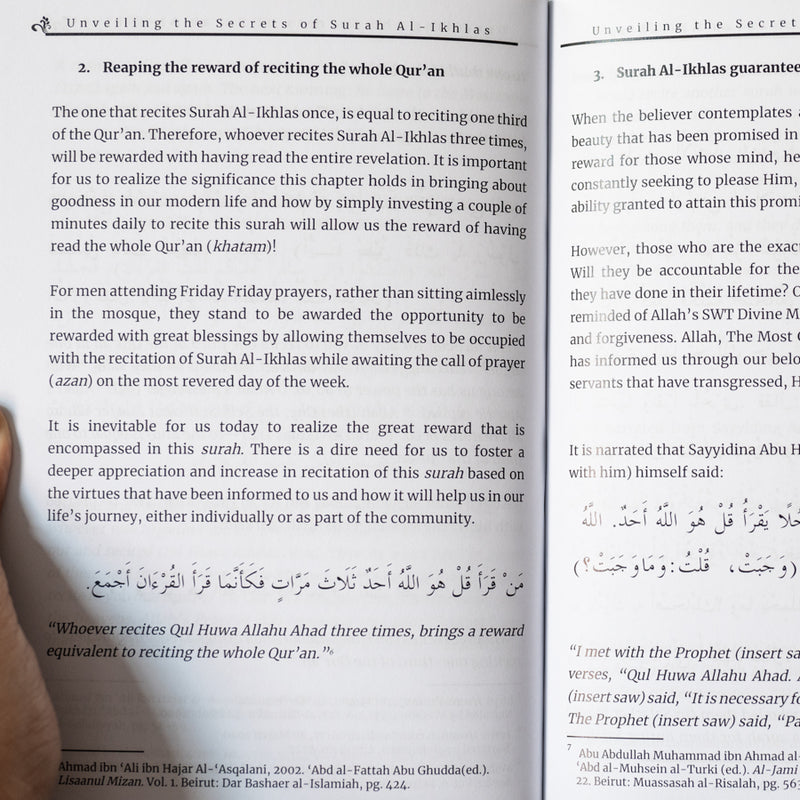 Unveiling the Secrets of Surah Al-Ikhlas
2. Reaping the reward of reciting the whole Qur’an
The one that recites Surah Al-Ikhlas once, is equal to reciting one third
of the Qur’an. Therefore, whoever recites Surah Al-Ikhlas three times,
will be rewarded with having read the entire revelation. It is important
for us to realize the significance this chapter holds in bringing about
goodness in our modern life and how by simply investing a couple of
minutes daily to recite this surah will allow us the reward of having
read the whole Qur’an (khatam)!
For men attending Friday Friday prayers, rather than sitting aimlessly
in the mosque, they stand to be awarded the opportunity to be
rewarded with great blessings by allowing themselves to be occupied
with the recitation of Surah Al-Ikhlas while awaiting the call of prayer
(azan) on the most revered day of the week.
It is inevitable for us today to realize the great reward that is
encompassed in this surah. There is a dire need for us to foster a
deeper appreciation and increase in recitation of this surah based on
the virtues that have been informed to us and how it will help us in our
life’s journey, either individually or as part of the community.
مَنْ قَرَأَ قُلْ هُوَ اللَّهُ أَحَدٌ ثَلَاثَ مَرَّاتٍ فَكَأَنَّمَا قَرَأَ القُرْءَانَ أَجْمَعَ.
“Whoever recites Qul Huwa Allahu Ahad three times, brings a reward
equivalent to reciting the whole Qur’an.”⁶
Ahmad ibn ‘Ali ibn Hajar Al-‘Asqalani, 2002. ‘Abd al-Fattah Abu Ghudda(ed.).
Lisaanul Mizan. Vol. 1. Beirut: Dar Bashaer al-Islamiah, pg. 424.
Unveiling the Secret
3. Surah Al-Ikhlas guarantee
When the believer contemplates
beauty that has been promised in
reward for those whose mind, he
constantly seeking to please Him,
ability granted to attain this promi
However, those who are the exac
Will they be accountable for the
they have done in their lifetime?
reminded of Allah’s SWT Divine M
and forgiveness. Allah, The Most
has informed us through our belo
servants that have transgressed, H
It is narrated that Sayyidina Abu H
with him) himself said:
يَقْرَأُ قُلْ هُوَ اللَّهُ أَحَدٌ. اللَّهُ
(وَجَبَتْ، قُلْتُ: وَمَا وَجَبَتْ؟)
“I met with the Prophet (insert sa
verses, “Qul Huwa Allahu Ahad.
(insert saw) said, “It is necessary fo
The Prophet (insert saw) said, “Pa
⁷ Abu Abdullah Muhammad ibn Ahmad al-
‘Abd al-Muhsein al-Turki (ed.). Al-Jami
22. Beirut: Muassasah al-Risalah, pg. 56